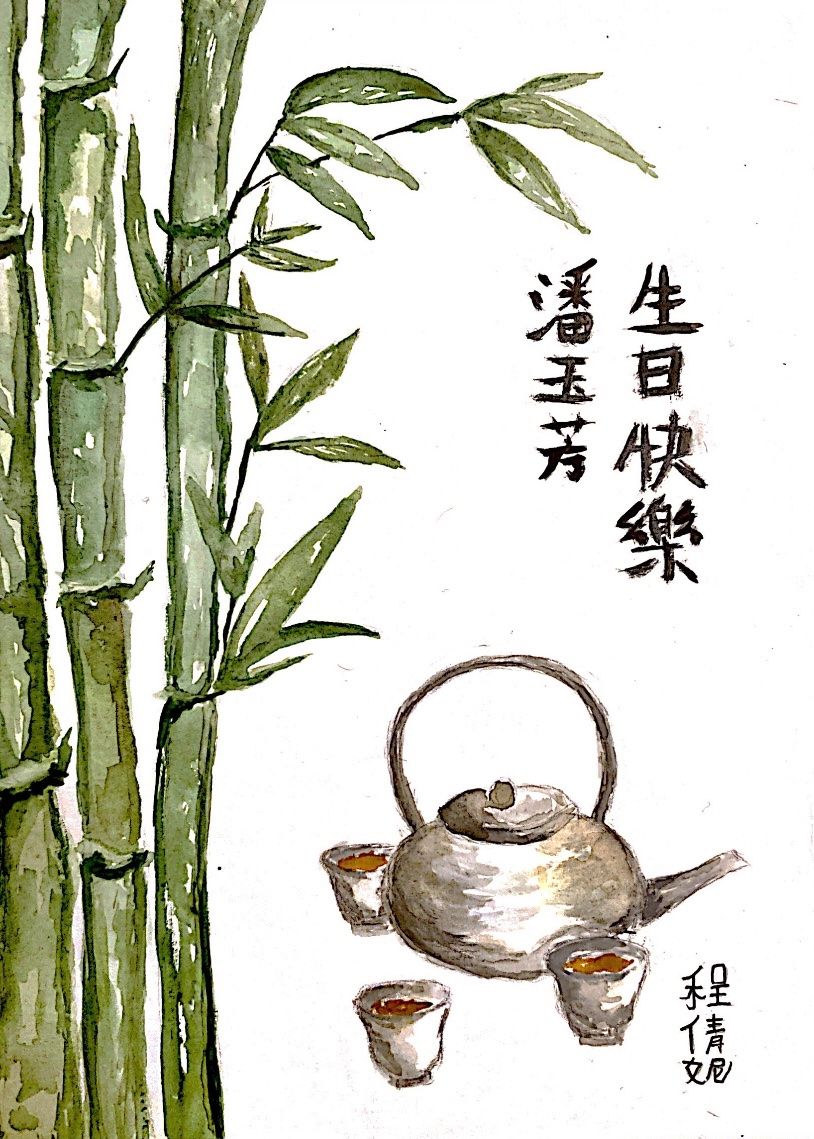 生日快樂
潘玉芳
程倩妮